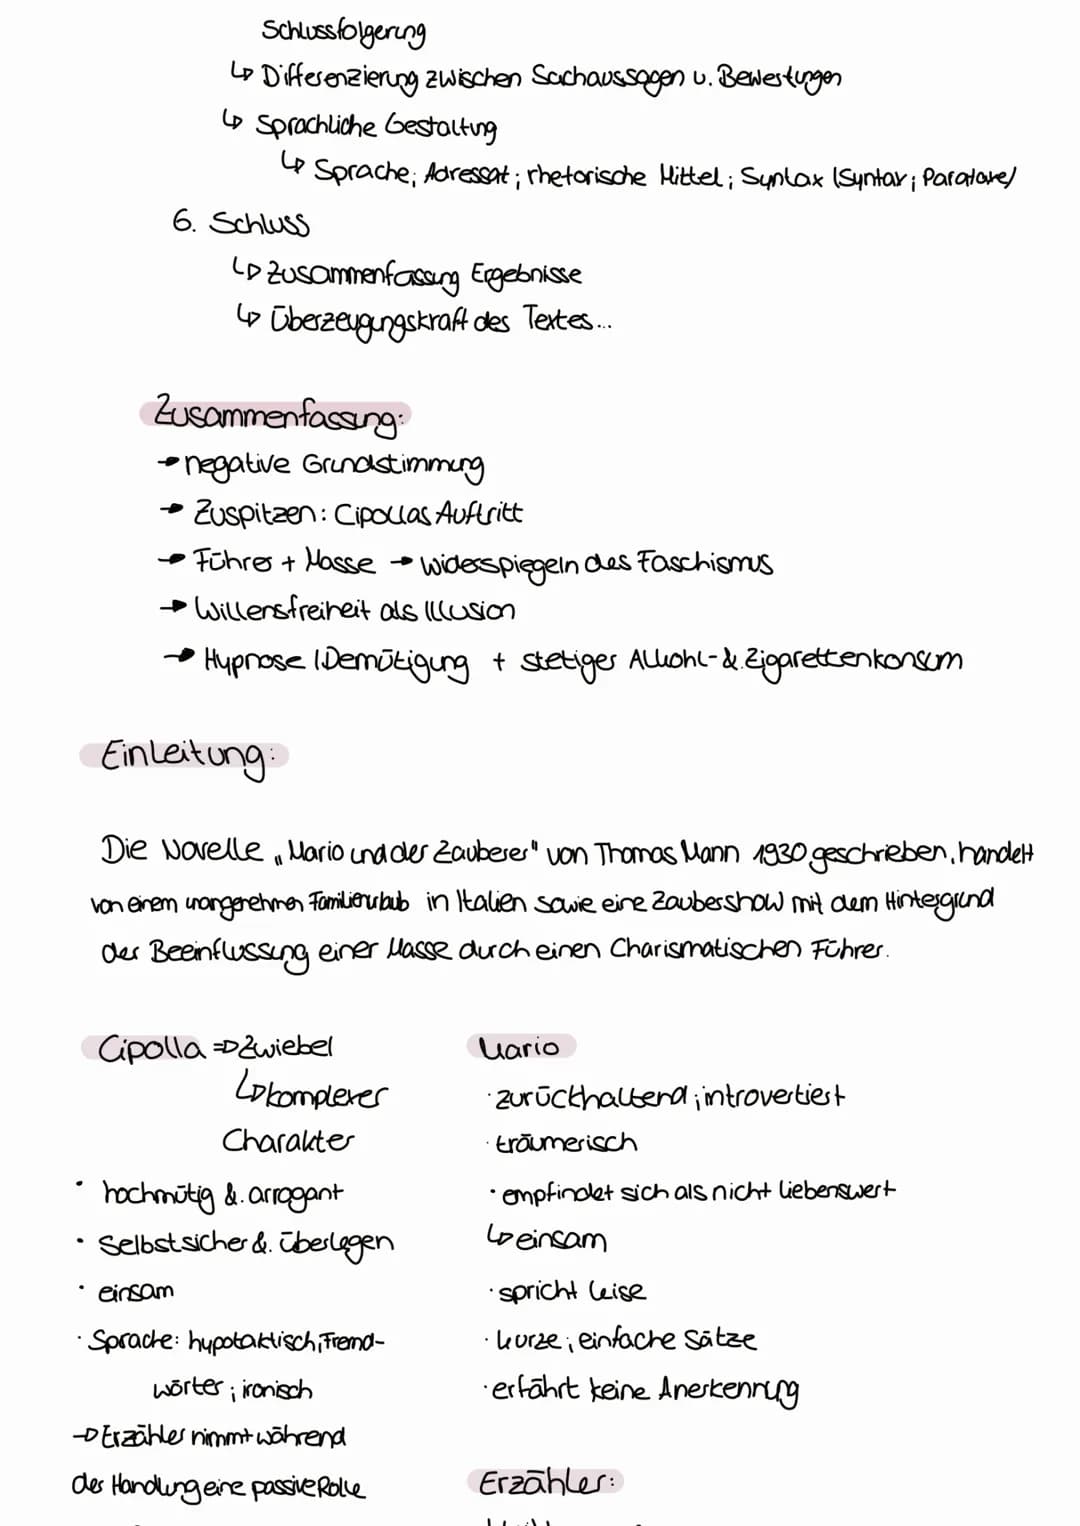 Schlussfolgerung
↳ Differenzierung zwischen Sachaussagen u. Bewertungen
↳ Sprachliche Gestaltung
↳ Sprache; Adressat; rhetorische Mittel; Syntax (Syntax; Parataxe)
6. Schluss
↳ Zusammenfassung Ergebnisse
↳ Überzeugungskraft des Textes...
Zusammenfassung:
→ negative Grundstimmung
→ Zuspitzen: Cipollas Auftritt
→ Führer + Masse → widerspiegeln des Faschismus
→ Willensfreiheit als Illusion
→ Hypnose | Demütigung + stetiger Alkohl- & Zigarettenkonsum
Einleitung:
Die Novelle „Mario und der Zauberer" von Thomas Mann 1930 geschrieben, handelt
von einem unangenehmen Familienurlaub in Italien sowie eine Zaubershow mit dem Hintergrund
der Beeinflussung einer Masse durch einen Charismatischen Führer.
Cipolla => Zwiebel
↳ komplexer
Charakter
· hochmütig & arrogant
· Selbstsicher & überlegen
· einsam
· Sprache: hypotaktisch; Fremd-
wörter; ironisch
→ Erzähler nimmt während
der Handlung eine passive Rolle
Mario
· zurückhaltend; introvertiert
· träumerisch
· empfindet sich als nicht liebenswert
↳ einsam
· spricht leise
· kurze; einfache Sätze
· erfährt keine Anerkennung
Erzähler: